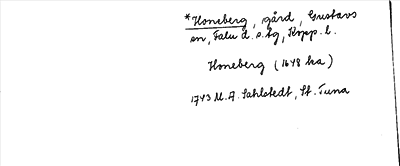 *Honeberg, gård, Gustavs
sn, Falu d. s. tg, Kopp. l.
Honeberg (1648 ka)
1743 M. A. Sahlstedt, St. Tuna